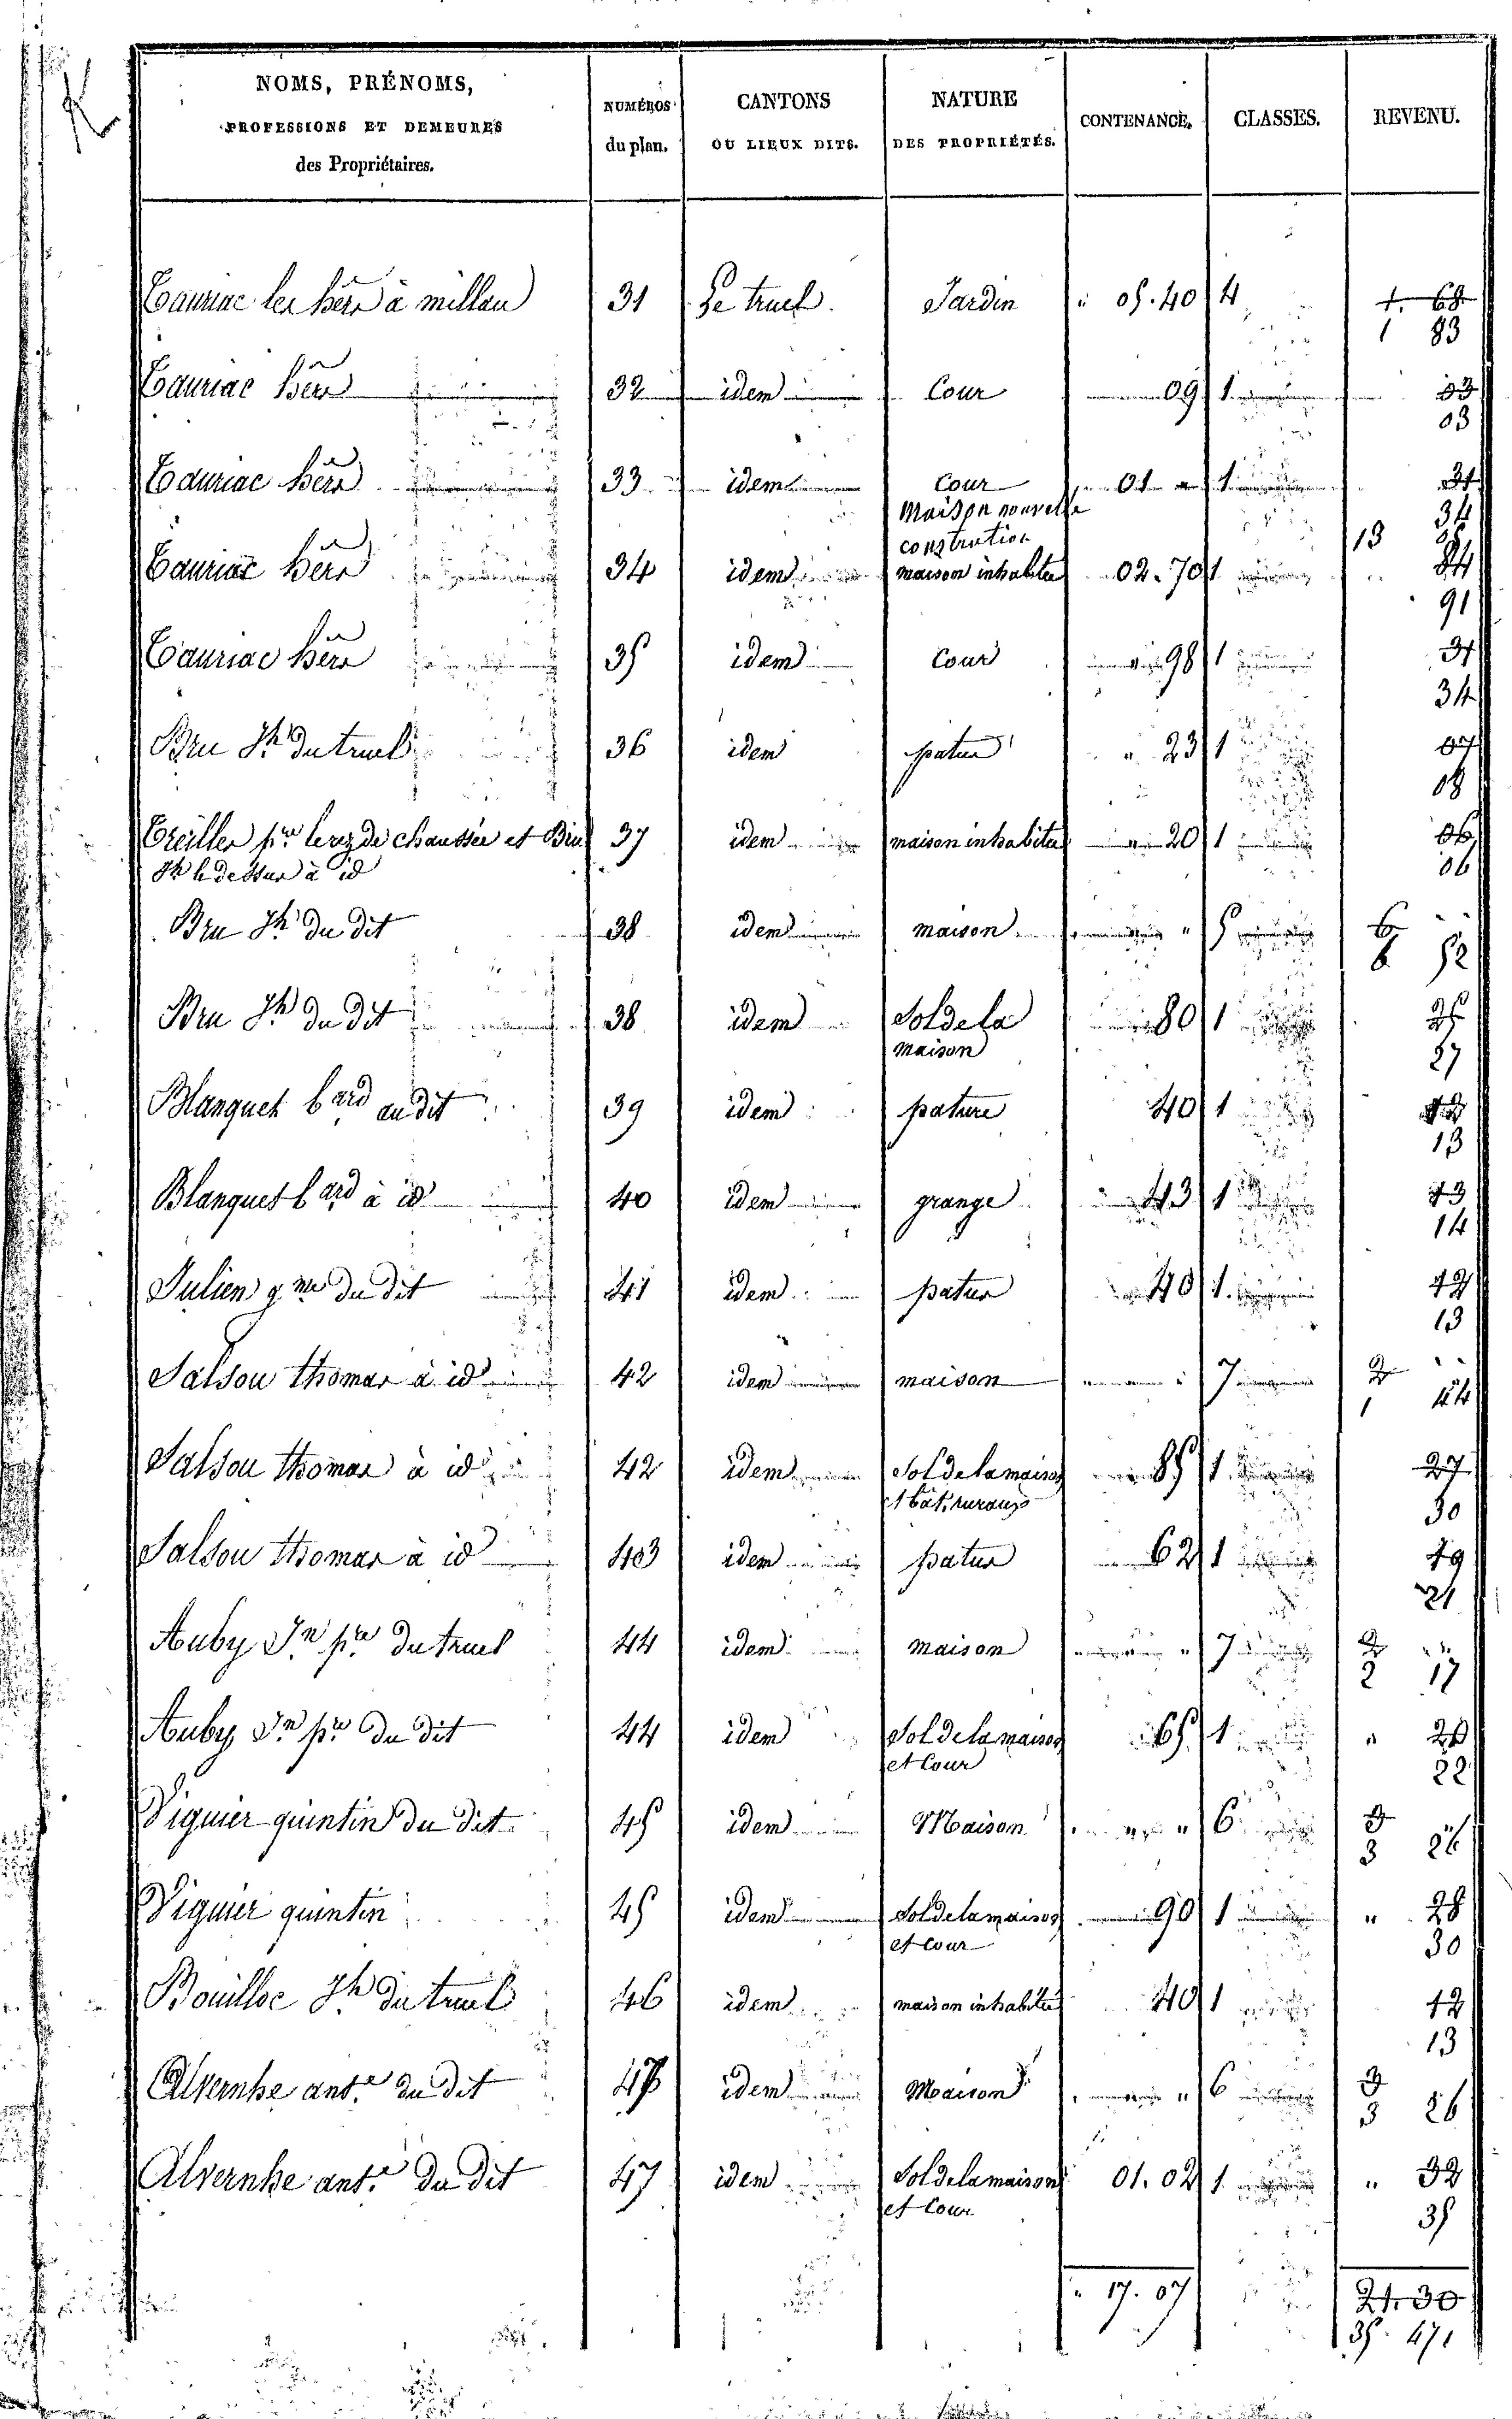 NOMS, PRÉNOMS,
PROFESSIONS ET DEMEURES
des Propriétaires.
NUMÉROS
du plan.
CANTONS
OU LIEUX DITS.
NATURE
DES PROPRIÉTÉS.
CONTENANCE.
CLASSES.
REVENU.
Cauriac les hérs à millau 31 Le truel. Jardin 05.40 4 1. 68
1 83
Cauriac hérs 32 idem Cour 09 1 03
03
Cauriac hérs 33 idem Cour 01 1 31
34
Maison nouvelle
constrution 13
Cauriac hérs 34 idem maison inhabitée 02.70 1 84
91
Cauriac hérs 35 idem Cour 98 1 31
34
Bru Jh du truel 36 idem patus 23 1 07
08
Creillen pre le rez de chaussée et Bru 37 idem maison inhabitée 20 1 06
Jh le dessus à id 06
Bru Jh du dit 38 idem maison " 5 6
6 52
Bru Jh du dit 38 idem Sol de la 80 1 25
maison 27
Blanquet bard au dit 39 idem pature 40 1 12
13
Blanquet bard à id 40 idem grange 43 1 13
14
Julien gme du dit 41 idem patus 40 1 12
13
Salsou thomas à id 42 idem maison 7 2
1 44
Salsou thomas à id 42 idem Sol de la maison 85 1 27
et bât. ruraux 30
Salsou thomas à id 43 idem patus 62 1 19
21
Auby Jn pre du truel 44 idem maison " 7 2
2 17
Auby Jn pre du dit 44 idem Sol de la maison 65 1 " 20
et Cour 22
Viguier quintin du dit 45 idem Maison " 6 3
3 26
Viguier quintin 45 idem Sol de la maison 90 1 " 28
et cour 30
Bouilloc Jh du truel 46 idem maison inhabitée 40 1 12
13
Alvernhe ante du dit 47 idem Maison " 6 3
3 26
Alvernhe ante du dit 47 idem Sol de la maison 01.02 1 " 32
et Cour 35
17.07 21.30
35. 47